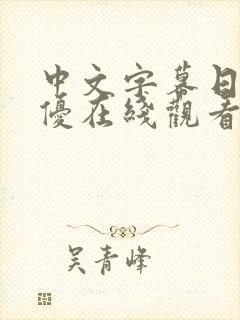 中文字幕日
優在綫觀看
吴青峰